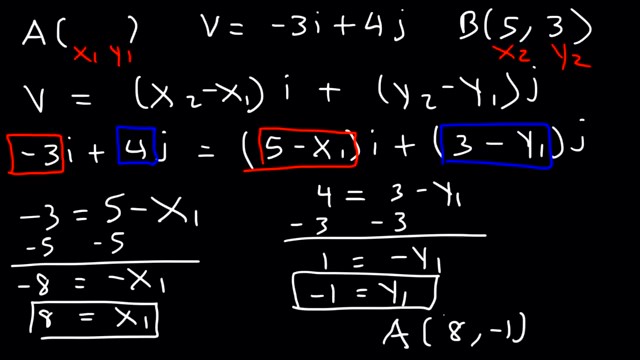 A(      )   V = -3i + 4j   B(5, 3)
X1 Y1   X2 Y2
V = (X2 - X1) i + (Y2 - Y1) j
-3i + 4j = (5 - X1) i + (3 - Y1) j
-3 = 5 - X1
-5   -5
-8 = -X1
8 = X1
4 = 3 - Y1
-3   -3
1 = -Y1
-1 = Y1
A(8, -1)